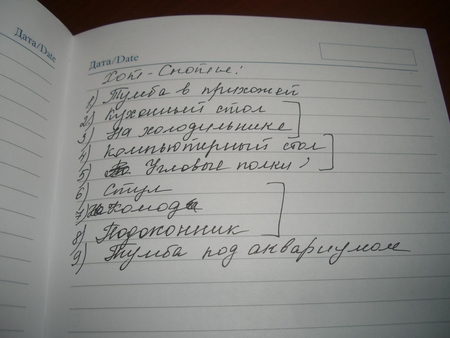 Дата/Date
Дата/Date
Хот-Спотые:
1) Тумба в прихожей
2) Кухонный стол
3) На холодильнике
4) Компьютерный стол
5) Угловые полки
6) Стул
7) Комод
8) Подоконник
9) Тумба под аквариумом